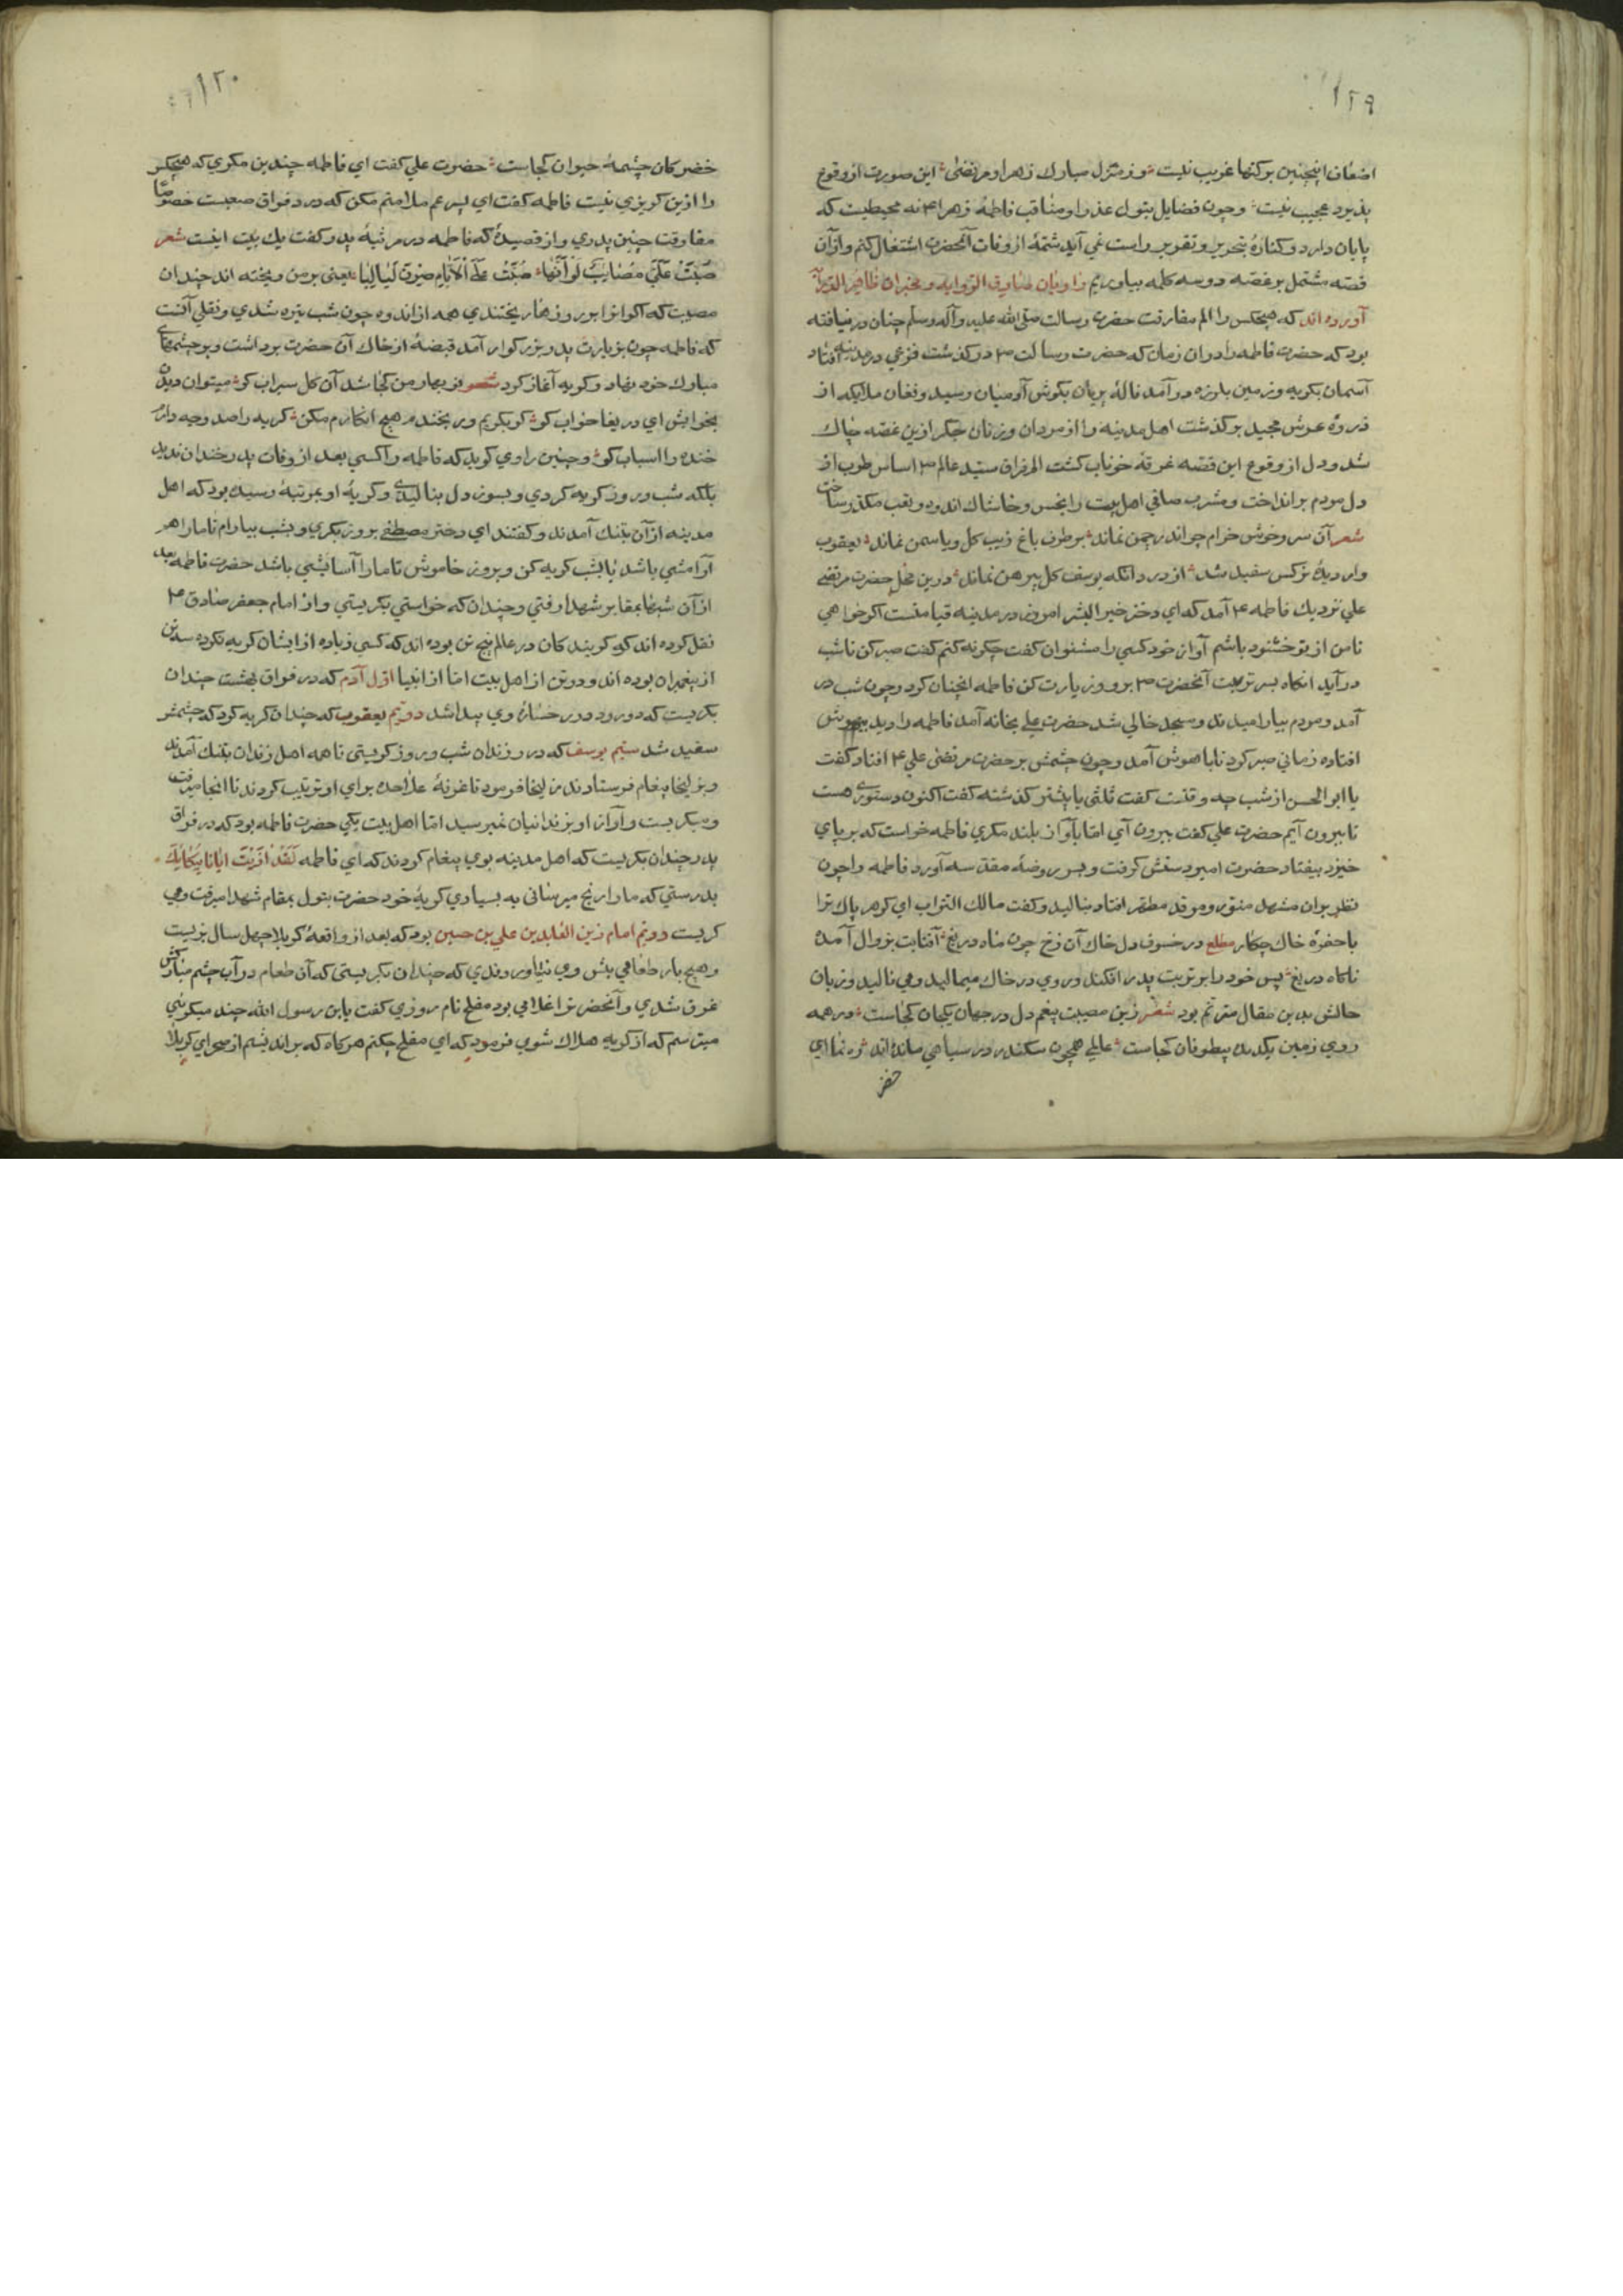 ۱۲۹
اضعاف اینچنین برکتها غریب نیست و ز منزل مبارك زهرا و مرتضی این صورت از وقوع
پذیرد عجیب نیست و چون فضایل بتول عذرا و مناقب فاطمهٔ زهرا ۴ نه محیطیست که
پایان دارد و کنارهٔ بتحریر و تقریر راست نمی آید شمّهٔ از وفات آنحضرت اشتغال کنم و ازان
قصه مشتمل بر غصّه دو سه کلمه بیاوریم راویان صادق الروایه و مخبران
آورده اند که هیچکس را الم مفارقت حضرت رسالت صلی الله علیه وآله وسلم چنان در نیافته
بود که حضرت فاطمه را دران زمان که حضرت رسالت ص درگذشت فزعی در مدینه افتاد
آسمان بگریه و زمین بلرزه درآمد نالهٔ پریان بگوش آدمیان رسید و فغان ملایکه از
ذروهٔ عرش مجید برگذشت اهل مدینه را از مردان و زنان جگر ازین غصه چاك
شد و دل از وقوع این قصّه غرقهٔ خوناب گشت الم فراق سیّد عالم ص اساس طرب از
دل مردم برانداخت و مشرب صافی اهل بیت را بخس و خاشاك اندوه و تعب مکدّر ساخت
شعر آن سرو خوش خرام جو اندر چمن نماند بر طرف باغ زیب گل و یاسمن نماند یعقوب
وار دیدهٔ نرگس سفید شد از درد آنکه یوسف گل پیرهن نماند درین محل حضرت مرتضی
علی نزدیك فاطمه ۴ آمد که ای دختر خیر البشر امروز در مدینه قیامتست اگر خواهی
تا من از تو خشنود باشم آواز خود کسی را مشنوان گفت چگونه کنم گفت صبر کن تا شب
درآید آنگاه بسر تربت آنحضرت ص برو و زیارت کن فاطمه اینچنان کرد و چون شب در
آمد و مردم بیارامیدند و مسجد خالی شد حضرت علی بخانه آمد فاطمه را دید بیهوش
افتاده زمانی صبر کرد تا باهوش آمد و چون چشمش بر حضرت مرتضی علی ۴ افتاد گفت
یا ابو الحسن از شب چه وقتست گفت ثلثی یا بیشتر گذشته گفت اکنون دستوری هست
تا بیرون آیم حضرت علی گفت بیرون آی امّا بآواز بلند مگری فاطمه خواست که بر پای
خیزد بیفتاد حضرت امیر دستش گرفت و بسر روضهٔ مقدّسه آورد فاطمه را چون
نظر بران مشهد منوّر و مرقد مطهّر افتاد بنالید و گفت مالك التراب ای گوهر پاك ترا
با حفرهٔ خاك چکار مطلع در خسوف دل خاك آن رخ چون ماه دریغ آفتابت بزوال آمدهٔ
ناگاه دریغ پس خود را بر تربت پدر افکند و روی در خاك میمالید و می نالید و زبان
حالش بدین مقال مترنّم بود شعر زین مصیبت بیغم دل در جهان یکجان کجاست در همه
روی زمین یکدیدهٔ بیطوفان کجاست عالمی همچون سکندر در سیاهی مانده اند ره نما ای
خضر
۱۲۰
خضر کان چشمهٔ حیوان کجاست حضرت علی گفت ای فاطمه چندین مگری که هیچکس
را ازین گریزی نیست فاطمه گفت ای پسر عم ملامتم مکن که درد فراق صعبست خصوصًا
مفارقت چنین پدری و از قصیدهٔ که فاطمه در مرثیهٔ پدر گفت یك بیت اینست شعر
صُبَّتْ عَلَیَّ مَصَایِبٌ لَوْ اَنَّهَا صُبَّتْ عَلَی الْاَیَّامِ صِرْنَ لَیَالِیَا یعنی بر من ریخته اند چندان
مصیبت که اگر انرا بر روزها ریختندی همه از اندوه چون شب تیره شدی و نقلی آنست
که فاطمه چون بزیارت پدر بزرگوار آمد قبضهٔ از خاك آن حضرت برداشت و بر چشمهای
مبارك خود نهاد و گریه آغاز کرد شعر نو بهار من کجا شد آن گل سیراب کو میتوان دیدن
بخوابش ای دریغا خواب کو گر بگریم ور بخندم هیچ انکارم مکن گریه را صد وجه دارم
خنده را اسباب کو و چنین راوی گوید که فاطمه را کسی بعد از وفات پدر خندان ندید
بلکه شب و روز گریه کردی و بسوز دل بنالیدی و گریهٔ او بمرتبهٔ رسیده بود که اهل
مدینه ازان بتنك آمدند و گفتند ای دختر مصطفی بروز بگری و بشب بیارام تا ما را هم
آرامشی باشد یا بشب گریه کن و بروز خاموش تا ما را آسایشی باشد حضرت فاطمه بعد
ازان شبها بمقابر شهدا رفتی و چندان که خواستی بگریستی و از امام جعفر صادق ۴
نقل کرده اند که گویندگان در عالم پنج تن بوده اند که کسی زیاده از ایشان گریه نکرده سه تن
از پیغمبران بوده اند و دو تن از اهل بیت امّا از انبیا اوّل آدم که در فراق بهشت چندان
بگریست که دو رود در رخسارهٔ وی پیدا شد دویّم یعقوب که چندان گریه کرد که چشمش
سفید شد سیّم یوسف که در زندان شب و روز گریستی تا همه اهل زندان بتنك آمدند
و بزلیخا پیغام فرستادند زلیخا فرمود تا غرفهٔ علاحده برای او ترتیب کردند تا انجا میرفت
و میگریست و آواز او بزندانیان نمیرسید امّا اهل بیت یکی حضرت فاطمه بود که در فراق
پدر چندان بگریست که اهل مدینه بوی پیغام کردند که ای فاطمه لَقَدْ اٰذَیْتِ اِیَّانَا بِبُکَائِكَ
بدرستی که ما را رنج میرسانی به بسیاری گریهٔ خود حضرت بتول بمقام شهدا میرفت و می
گریست دویّم امام زین العابدین علی بن حسین بود که بعد از واقعهٔ کربلا چهل سال بزیست
و هیچ بار طعامی پیش وی نیاوردندی که چندان بگریستی که آن طعام در آب چشم مبارکش
غرق شدی و آنحضرترا غلامی بود مفلح نام روزی گفت یا بن رسول الله چند میگریی
میترسم که از گریه هلاك شوی فرمود که ای مفلح چکنم هر گاه که براندیشم از صحرای کربلا